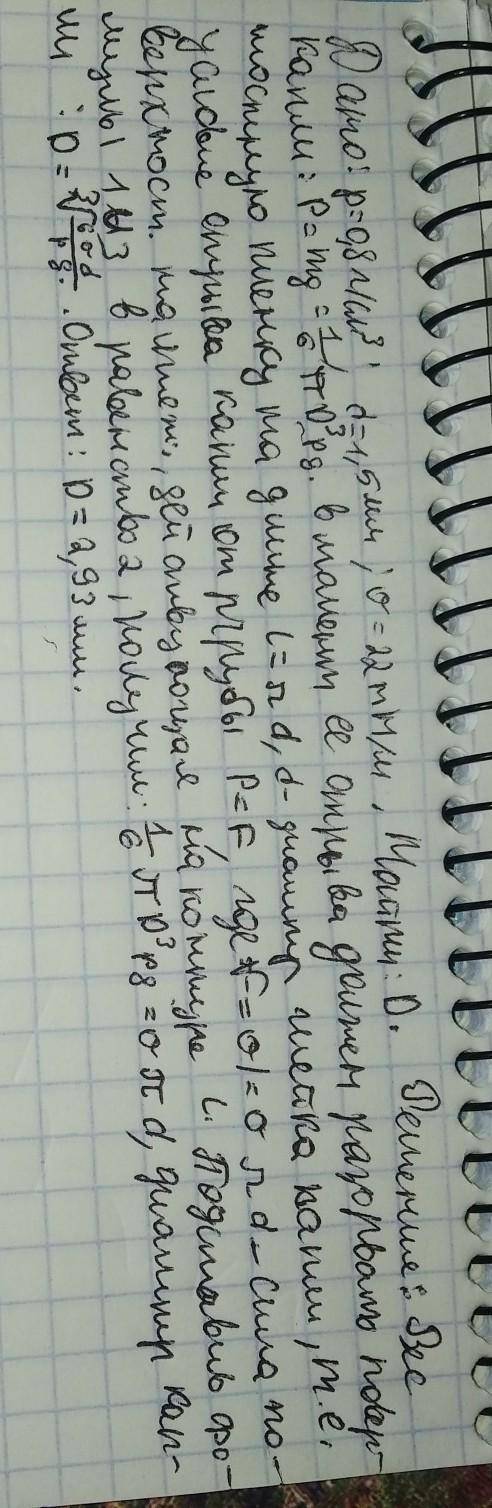 Дано: p=0,8 г/см³; d=1,5мм; σ=22mH/м, Найти: D. Решение: Вес
капли: P=mg=1/6 πD³pg. в момент ее отрыва должен разорвать повер-
ностную пленку на длине l=πd, d-диаметр шейка капли, т.е.
условие отрыва капли от трубы P=F где F=σl=σπd-сила по-
верхност. натяжен., действующая на контуре L. Подставив фо-
мулы 1 и 3 в равенство 2, получим: 1/6 πD³pg=σπd, диаметр кап-
ли: D=³√6σd/pg. Ответ: D=2,93мм.